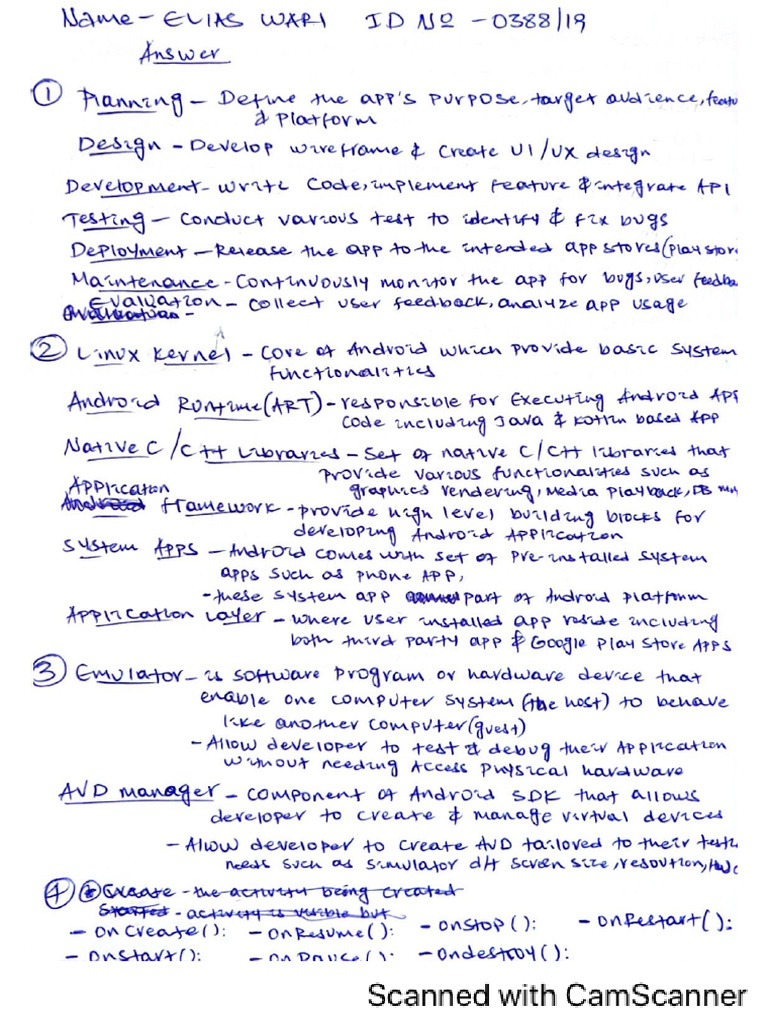 Name - ELIAS WARI ID NO - 0388/19
Answer
① Planning - Define the app's purpose, target audience, featu
& Platform
Design - Develop wireframe & create UI/UX design
Development - write code, implement feature & integrate API
Testing - conduct various test to identify & fix bugs
Deployment - Release the app to the intended app stores (play stor
Maintenance - Continuously monitor the app for bugs, user feedba
Evaluation - collect user feedback, analyze app usage
② Linux Kernel - core of Android which provide basic system
functionalities
Android Runtime (ART) - responsible for executing Android APP
code including Java & Kotlin based APP
Native C/C++ Libraries - set of native C/C++ libraries that
provide various functionalities such as
Application graphics rendering, media playback, DB
framework - provide high level building blocks for
developing Android Application
System Apps - Android comes with set of pre-installed system
apps such as phone APP,
- these system app part of Android platform
Application Layer - where user installed app reside including
both third party app & Google Play Store APPs
③ Emulator - is software program or hardware device that
enable one computer system (the host) to behave
like another computer (guest)
- Allow developer to test & debug their Application
without needing access physical hardware
AVD manager - component of Android SDK that allows
developer to create & manage virtual devices
- Allow developer to create AVD tailored to their testi
needs such as simulator d/t screen size, resoution,
④ Create - the activity being created
Started - activity is visible but
- onCreate(): - onResume(): - onStop(): - onRestart():
- onStart(): - onPause(): - ondestroy():
Scanned with CamScanner